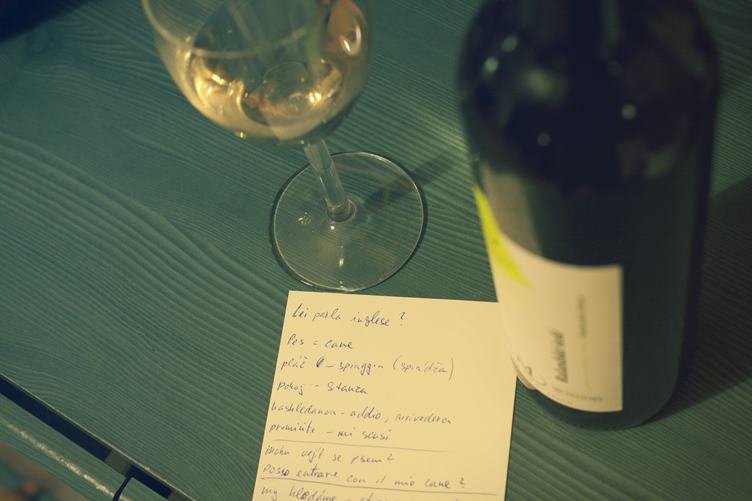 Lei parla inglese?
Pes = cane
pláž - spiaggin (spiádža)
Pokoj - Stanza
naskledanou - addio, arrivederci
promiňte - mi scusi
mohu vejít se psem?
Posso entrare con il mio cane?
my hledáme -